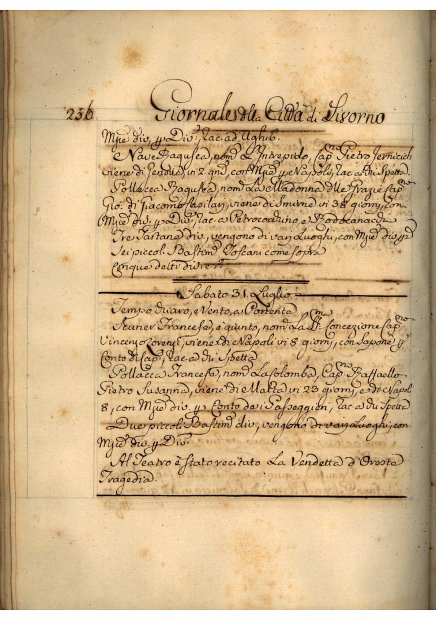 236 Giornale della Città di Livorno
Mzie div. p Div. Rac. ad Aghib.
Nave Ragusea, nom. L'Intrepido, Cap. Pietro Jernicich
viene di Genova in 2 gni, con Mzie p Napoli, rac. a du Spetta
Pollacca Ragusea, nom. La Madonna delle Grazie Cap.
Gio. di Giacomo, viene di Smirne in 38 giorni, con
Mzie div. p Div. Rac. a Petrocochino, e
Tre Tartane div. vengono di varj Luoghi, con Mzie div. p D
Sei piccoli Bastim. Toscani come sopra
Cinque detti div.
Sabato 31. Luglio
Tempo Vento a Ponente
Francese, è giunto, nom. La SSma Concezione Cap.
Vincenzo viene di Napoli in 8 giorni, con Sapone p
Conto di Cap. rac. a du Spetta
Pollacca Francese, nom. La Colomba, Cap. Raffaello
Pietro Susanna, viene di Malta in 23 giorni, e da Napoli
8, con Mzie div. p Conto de i Passeggieri, rac. a du Spetta
Due piccoli Bastim. div. vengono di varj Luoghi, con
Mzie div. p Div.
Al Teatro è stato recitato La Vendetta d'Oreste
Tragedia